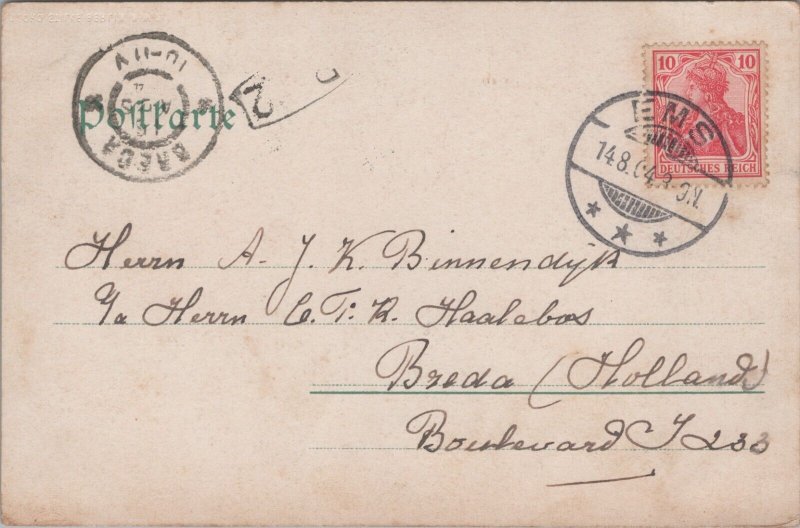 Postkarte
BREDA
10-11V
2
10 10
DEUTSCHES REICH
EMS
14.8.04.8-9.V.
* * *
Herrn A. J. K. Binnendijk
p/a Herrn C. T. R. Haalebos
Breda (Holland)
Boulevard J 233